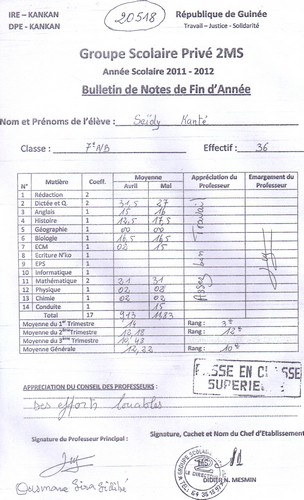 IRE – KANKAN
DPE - KANKAN
20518
République de Guinée
Travail – Justice - Solidarité
Groupe Scolaire Privé 2MS
Année Scolaire 2011 - 2012
Bulletin de Notes de Fin d'Année
Nom et Prénoms de l'élève : Seïdy Kanté
Classe : 7è NB Effectif : 36
N° Matière Coeff. Moyenne Appréciation du Professeur Emargement du Professeur
Avril Mai
1 Rédaction 2
2 Dictée et Q. 2 31,5 27
3 Anglais 1 15 16
4 Histoire 1 17,5
5 Géographie 1 00 00
6 Biologie 1 16,5 16,5
7 ECM 1 02 15
8 Ecriture N'ko 1
9 EPS 1
10 Informatique 1
11 Mathématique 2 21 31
12 Physique 1 02 08
13 Chimie 1 02 02
14 Conduite 1 15
Total 17
Assez bon Travail
Moyenne du 1er Trimestre 14 Rang : 3è
Moyenne du 2ème Trimestre 12,18 12è
Moyenne du 3ème Trimestre 10,48
Moyenne Générale 12,22 Rang : 10è
PASSE EN CLASSE
SUPERIEURE
APPRÉCIATION DU CONSEIL DES PROFESSEURS :
Des efforts louables
Signature du Professeur Principal :
Signature, Cachet et Nom du Chef d'Etablissement
GROUPE SCOLAIRE
LE DIRECTEUR
DIDIER N. MESMIN
Ousmane Sidibé